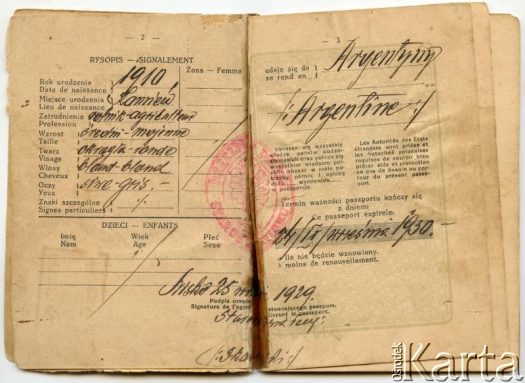 — 2 —
RYSOPIS — SIGNALEMENT
Żona — Femme
Rok urodzenia 1910
Date de naissance
Miejsce urodzenia
Lieu de naissance
Zatrudnienie rolnik-agriculteur
Profession
Wzrost średni-moyenne
Taille
Twarz okrągła-ronde
Visage
Włosy blond-blond
Cheveux
Oczy siwe-gris
Yeux
Znaki szczególne
Signes particuliers
DZIECI — ENFANTS
Imię Wiek Płeć
Nom Age Sexe
25 1929
Podpis urzędn
Signature de l'agent
— 3 —
udaje się do Argentyny
se rend en
/:Argentine:/
Uprasza się wszystkie
władze państw
Les Autorités des Etats
étrangers sont priées et
les Autorités polonaises
requises de vouloir bien
prêter aide et protection
en cas de besoin au por-
teur du présent passe-
port.
Termin ważności paszportu kończy się
z dniem:
Ce passeport expire le:
września 1930.
o ile nie będzie wznowiony.
à moins de renouvellement.
wystawiającego paszport.
délivrant le passeport.
ośrodek
Karta
www.karta.org.pl